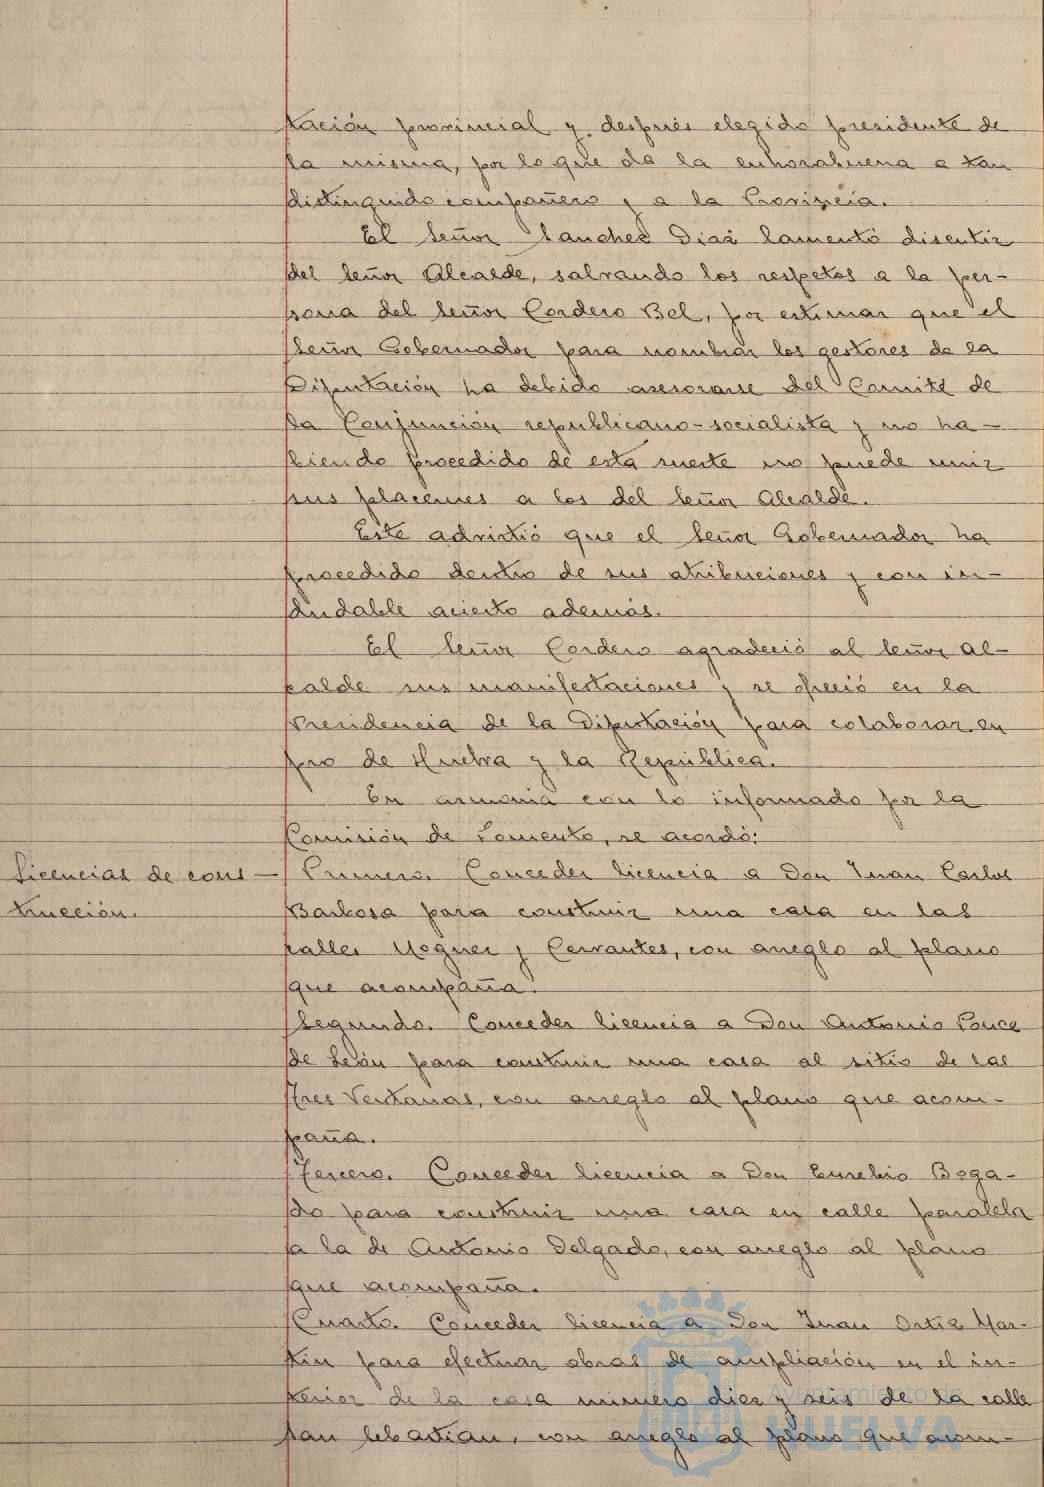 tación provincial y después elegido presidente de
la misma, por lo que da la enhorabuena a tan
distinguido compañero y a la Provincia.
El Señor Sanchez Diaz lamentó disentir
del Señor Alcalde, salvando los respetos a la per-
sona del Señor Cordero Bel, por estimar que el
Señor Gobernador para nombrar los gestores de la
Diputación ha debido asesorarse del Comité de
la Conjunción republicano-socialista y no ha-
biendo procedido de esta suerte no puede unir
sus placemes a los del Señor Alcalde.
Este advirtió que el Señor Gobernador ha
procedido dentro de sus atribuciones y con in-
dudable acierto además.
El Señor Cordero agradeció al Señor Al-
calde sus manifestaciones y se ofreció en la
Presidencia de la Diputación para colaborar en
pro de Huelva y la República.
En armonia con lo informado por la
Comisión de Fomento, se acordó:
Licencias de cons- Primero. Conceder licencia a Don Juan Carlos
trucción. Barbosa para construir una casa en las
calles Moguer y Cervantes, con arreglo al plano
que acompaña.
Segundo. Conceder licencia a Don Antonio Ponce
de León para construir una casa al sitio de las
Tres Ventanas, con arreglo al plano que acom-
paña.
Tercero. Conceder licencia a Don Eusebio Boga-
do para construir una casa en calle paralela
a la de Antonio Delgado, con arreglo al plano
que acompaña.
Cuarto. Conceder licencia a Don Juan Ortiz Mar-
tin para efectuar obras de ampliación en el in-
terior de la casa número diez y seis de la calle
San Sebastian, con arreglo al plano que acom-
Ayuntamiento de
HUELVA